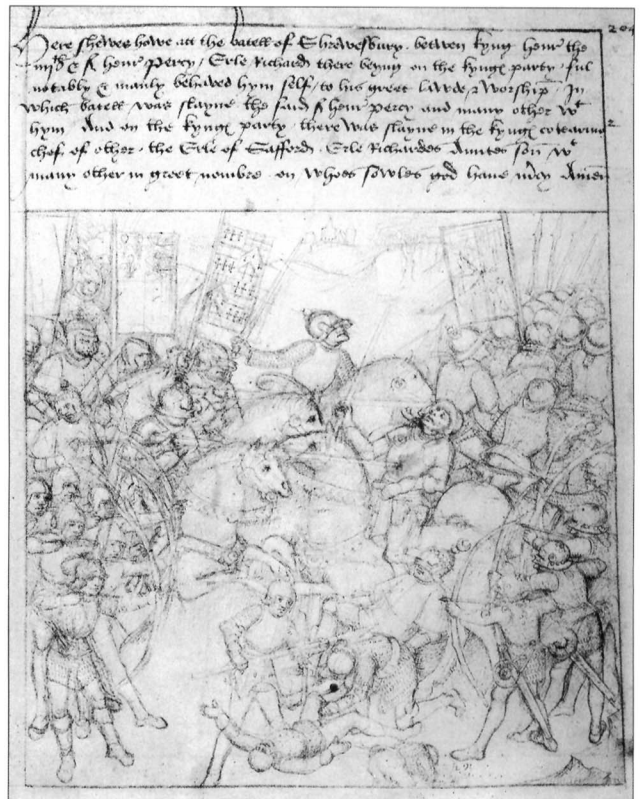 Here shewes howe att the batell of Shrewesbury. betwen kyng henr the
iiijth & s henr Percy / Erle Richard there beyng on the kynges party. ful
notably & manly behaved hym self / to his greet lawde & worship. In
which batell was slayne the said s henr Percy and many other wt
hym And on the kynges party. there was slayne in the kynges cotearmo
chef of other. the Erle of Stafford. Erle Richardes Auntes son wt
many other in greet nombre. on whoes sowles god have mcy Amen